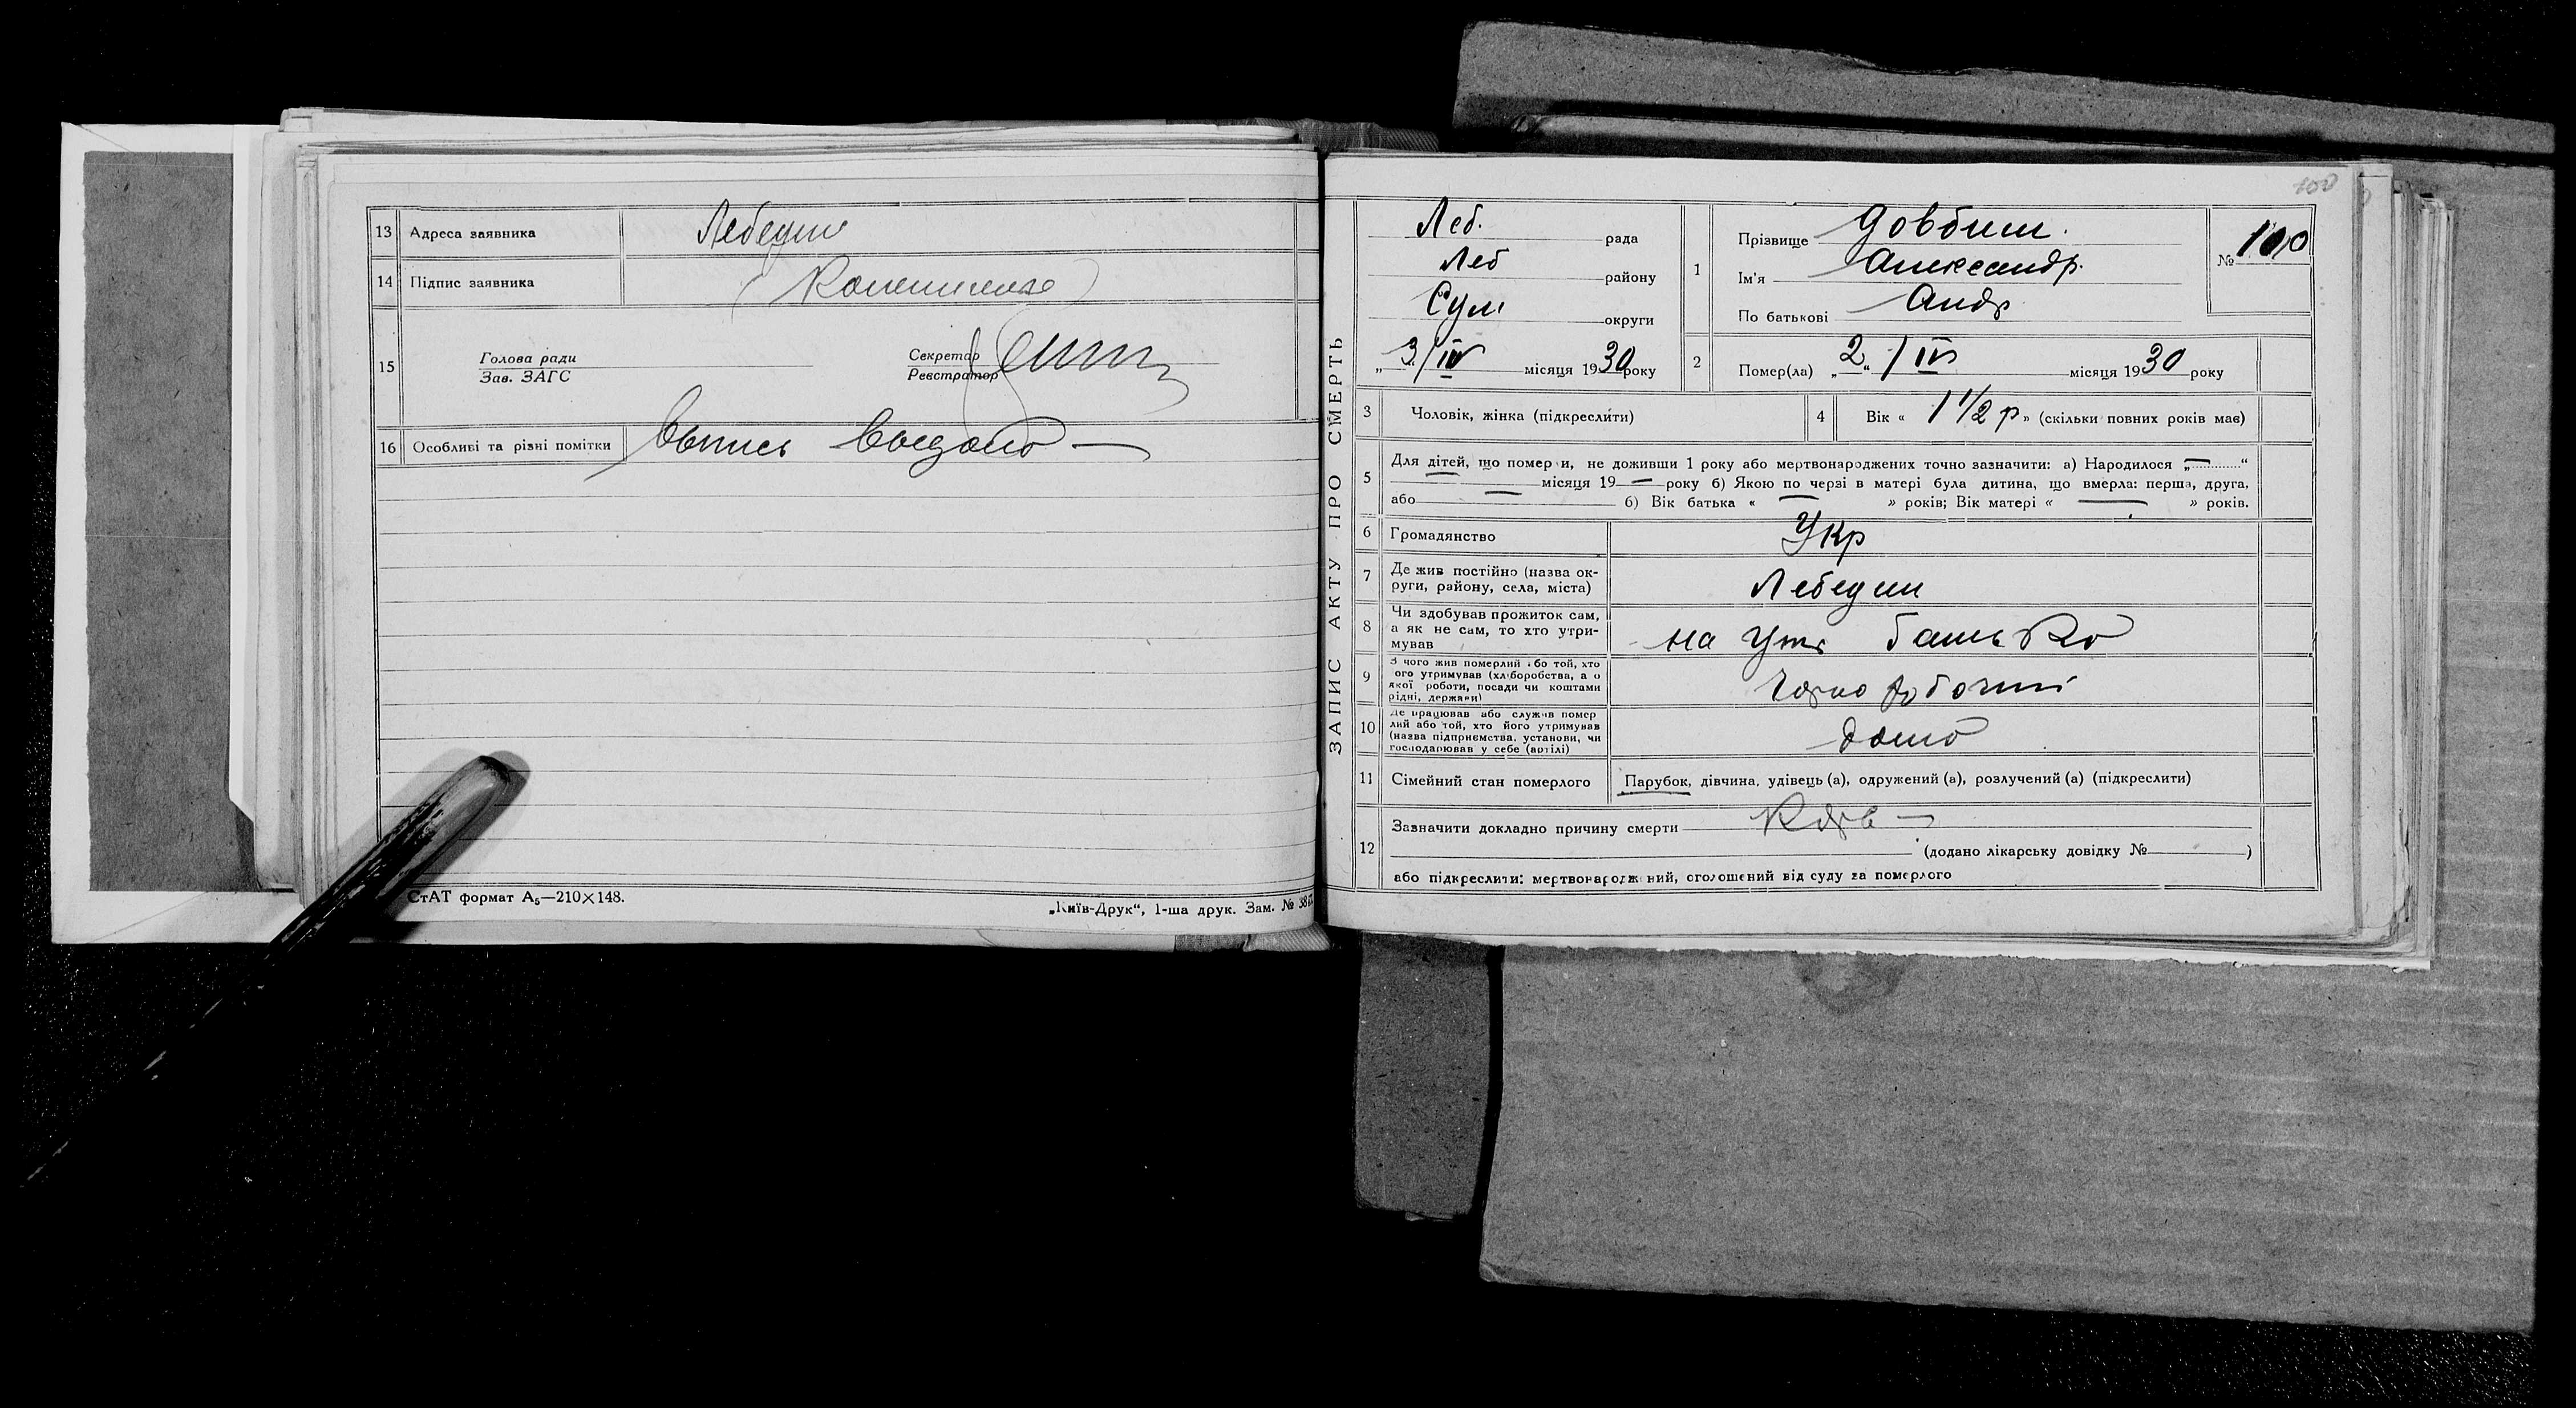 13 Адреса заявника Лебедин
14 Підпис заявника
15 Голова ради
Зав. ЗАГС
Секретар
Реєстратор
16 Особливі та різні помітки Выпись выдано —
СтАТ формат А5—210×148.
„Київ-Друк“, 1-ша друк. Зам. №
100
ЗАПИС АКТУ ПРО СМЕРТЬ
Леб. рада
Леб району
Сум округи
„3/IV місяця 1930 року
1 Прізвище Довбиш.
Ім'я Александр.
По батькові Андр
№ 100
2 Помер(ла) „2“/IV місяця 1930 року
3 Чоловік, жінка (підкреслити)
4 Вік « 1 1/2 р » (скільки повних років має)
5 Для дітей, що померли, не доживши 1 року або мертвонароджених точно зазначити: а) Народилося „—“
— місяця 19— року б) Якою по черзі в матері була дитина, що вмерла: перша, друга,
або — б) Вік батька « — » років; Вік матері « — » років.
6 Громадянство Укр
7 Де жив постійно (назва ок-
руги, району, села, міста) Лебедин
8 Чи здобував прожиток сам,
а як не сам, то хто утри-
мував на утр батько
9 З чого жив померлий або той, хто
його утримував (хліборобства, а о
якої роботи, посади чи коштами
рідні, держави) Чорноробочий
10 Де працював або служив помер
лий або той, хто його утримував
(назва підприємства, установи, чи
господарював у себе (артілі)
11 Сімейний стан померлого Парубок, дівчина, удівець (а), одружений (а), розлучений (а) (підкреслити)
12 Зазначити докладно причину смерти
(додано лікарську довідку № )
або підкреслити: мертвонароджений, оголошений від суду за померлого